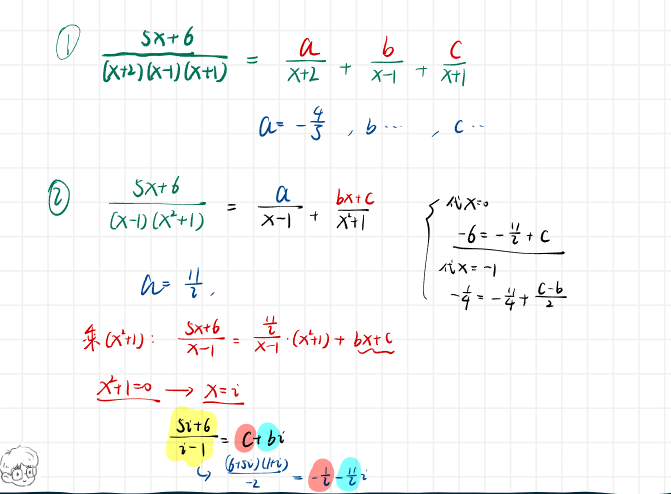 ① \frac{5x+6}{(x+2)(x-1)(x+1)} = \frac{a}{x+2} + \frac{b}{x-1} + \frac{c}{x+1}
a = -\frac{4}{3} , b ... , c ..
② \frac{5x+6}{(x-1)(x²+1)} = \frac{a}{x-1} + \frac{bx+c}{x²+1}
a = \frac{11}{2} ,
乘(x²+1): \frac{5x+6}{x-1} = \frac{\frac{11}{2}}{x-1}·(x²+1) + bx+c
x²+1=0 → x=i
\frac{5i+6}{i-1} = c+bi
↳ \frac{(6+5i)(1+i)}{-2} = -\frac{1}{2} - \frac{11}{2}i
代x=0
-6 = -\frac{11}{2} + c
代x=-1
-\frac{1}{4} = -\frac{11}{4} + \frac{c-b}{2}